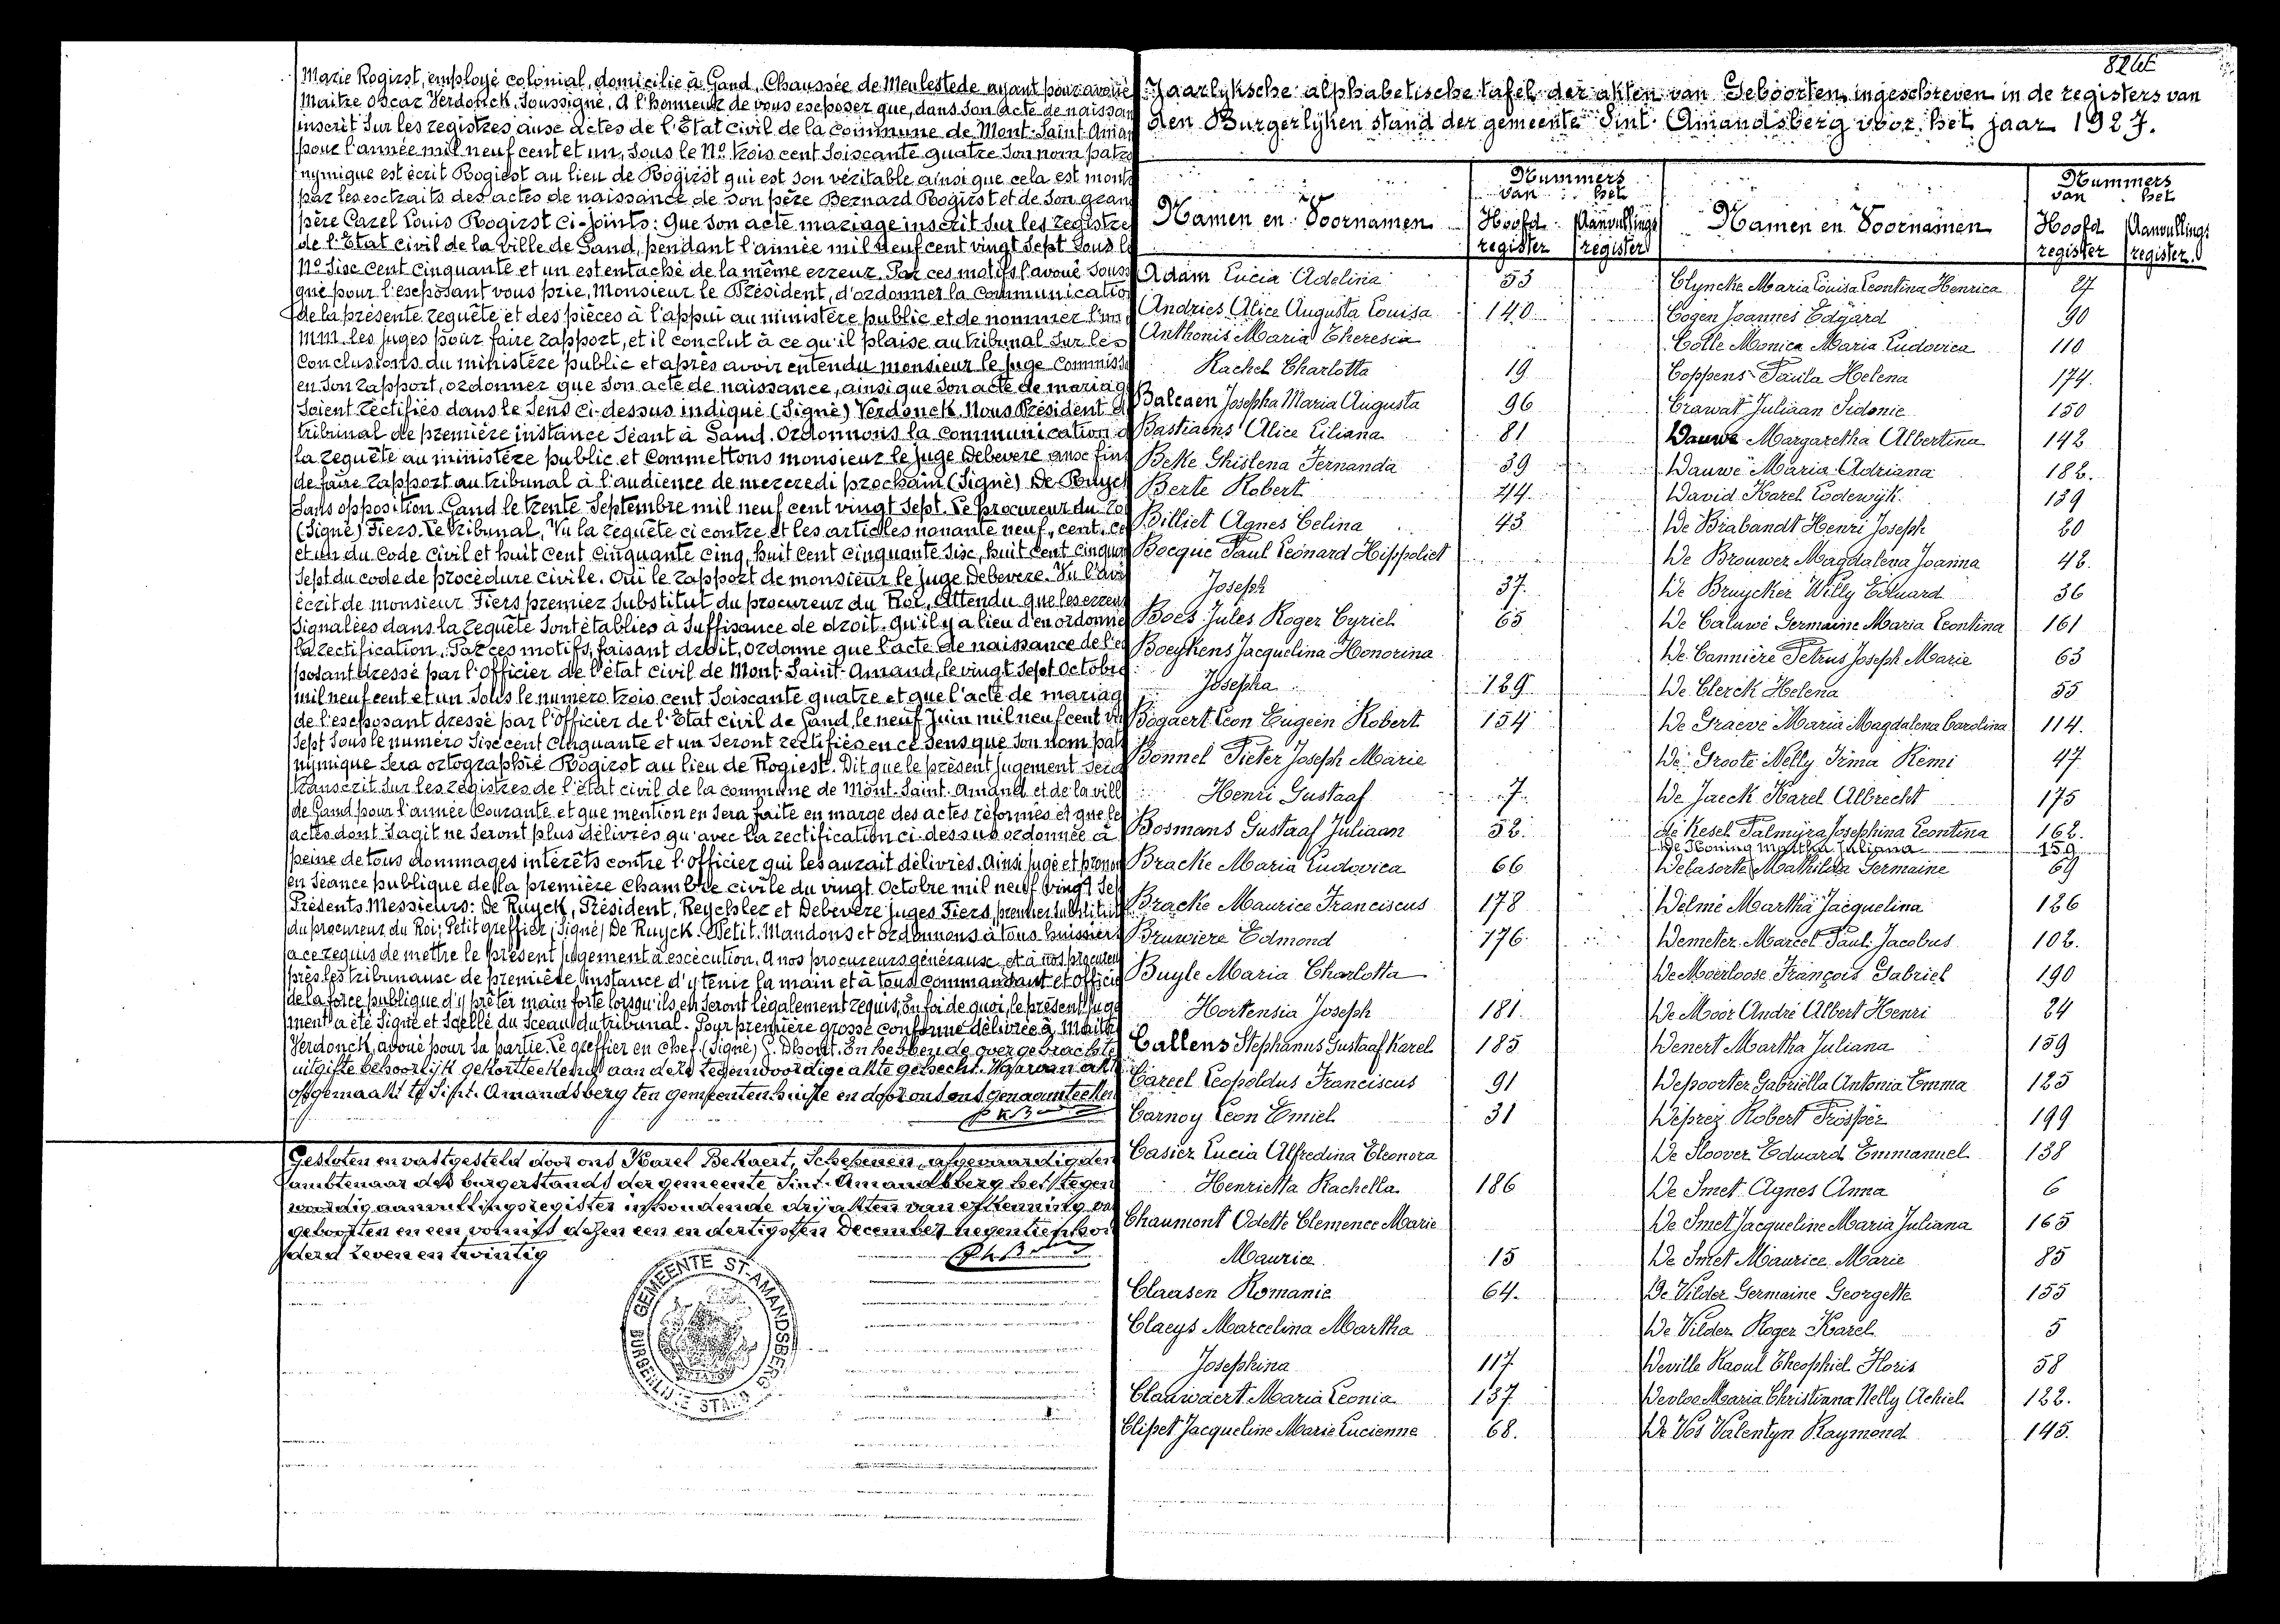 Marie Rogirst, employé colonial, domicilié à Gand, Chaussée de Meulestede ayant pour avoué
Maitre Oscar Verdonck, Soussigné, A l'honneur de vous exposer que, dans son acte de naissan
inscrit sur les registres aux actes de l'Etat Civil de la Commune de Mont-Saint-Aman
pour l'année mil neuf cent et un, sous le No. trois cent soixante quatre son nom patro
nymique est écrit Rogiest au lieu de Rogirst qui est son véritable ainsi que cela est mont
par les extraits des actes de naissance de son père Bernard Rogirst et de son gran
père Carel Louis Rogirst ci-joints: Que son acte mariage inscrit sur les registre
de l'Etat Civil de la ville de Gand, pendant l'année mil neuf cent vingt sept sous l
No. Six cent cinquante et un est entaché de la même erreur. Par ces motifs l'avoué Sous
gné pour l'exposant vous prie, Monsieur le Président, d'ordonner la communicatio
de la présente requête et des pièces à l'appui au ministère public et de nommer l'un
MM. les juges pour faire rapport, et il conclut à ce qu'il plaise au tribunal sur les
Conclusions du ministère public et après avoir entendu monsieur le juge Commiss
en son rapport, ordonner que son acte de naissance, ainsi que son acte de mariag
soient rectifiés dans le sens ci-dessus indiqué (Signé) Verdonck. Nous Président d
tribunal de première instance séant à Gand. Ordonnons la communication d
la requête au ministère public et commettons monsieur le juge Debevere aux fins
de faire rapport au tribunal à l'audience de mercredi prochain (Signé) De Ruyck
Sans opposition Gand le trente Septembre mil neuf cent vingt sept. Le procureur du Roi
(Signé) Fiers. Le tribunal, Vu la requête ci contre et les articles nonante neuf, cent, ce
et un du Code Civil et huit cent cinquante cinq, huit cent cinquante six, huit cent cinquan
sept du code de procédure civile. Oui le rapport de monsieur le juge Debevere. Vu l'avi
écrit de monsieur Fiers premier Substitut du procureur du Roi, Attendu que les erreur
signalées dans la requête sont établies à suffisance de droit. Qu'il y a lieu d'en ordonne
la rectification. Par ces motifs, faisant droit, ordonne que l'acte de naissance de l'ex
posant dressé par l'Officier de l'état civil de Mont-Saint-Amand, le vingt sept Octobre
mil neuf cent et un sous le numéro trois cent soixante quatre et que l'acte de mariag
de l'exposant dressé par l'Officier de l'Etat civil de Gand, le neuf Juin mil neuf cent vin
sept sous le numéro six cent cinquante et un seront rectifiés en ce sens que son nom pat
nymique sera ortographié Rogirst au lieu de Rogiest. Dit que le présent jugement sera
transcrit sur les registres de l'état civil de la commune de Mont-Saint-Amand et de la vill
de Gand pour l'année courante et que mention en sera faite en marge des actes réformés et que le
actes dont s'agit ne seront plus délivrés qu'avec la rectification ci-dessus ordonnée à
peine de tous dommages intérêts contre l'officier qui les aurait délivrés. Ainsi jugé et pronon
en séance publique de la première Chambre civile du vingt Octobre mil neuf vingt sep
Présents Messieurs: De Ruyck, Président, Reychler et Debevere juges Fiers, premier substitut
du procureur du Roi, Petit greffier, (Signé) De Ruyck. Petit. Mandons et ordonnons à tous huissiers
à ce requis de mettre le présent jugement à exécution. A nos procureurs généraux et à nos procureu
près les tribunaux de première instance d'y tenir la main et à tous commandant et officie
de la force publique d'y prêter main forte lorsqu'ils en seront légalement requis. En foi de quoi, le présent juge
ment a été signé et scellé du sceau du tribunal. Pour première grosse conforme délivrée à Maitre
Verdonck, avoué pour sa partie. Le greffier en chef. (Signé) G. Dhont. En hebben de overgebrachte
uitgifte behoorlijk gekortteekend aan deze tegenwoordige akte gehecht. Waarvan akt
opgemaakt te Sint-Amandsberg ten gemeentenhuize en door ons ons genaamteeken
Gesloten en vastgesteld door ons Karel Bekaert, Schepenen, afgevaardigden
ambtenaar des burgerstands der gemeente Sint-Amandsberg het tegen
woordig aanvullingsregister inhoudende drij akten van erkenning van
geboorten en een vonnis dezen een en dertigsten December negentienhon
derd zeven en twintig
GEMEENTE ST-AMANDSBERG
BURGERLIJKE STAND
Jaarlyksche alphabetische tafel der akten van Geboorten ingeschreven in de registers van
den Burgerlijken stand der gemeente Sint-Amandsberg voor het jaar 1927.
Namen en Voornamen
Nummers
van het
Hoofd register
Aanvullings register
Namen en Voornamen
Nummers
van het
Hoofd register
Aanvullings register
Adam Lucia Adelina 53
Andries Alice Augusta Louisa 140
Anthonis Maria Theresia
Rachel Charlotta 19
Balcaen Josepha Maria Augusta 96
Bastiaens Alice Liliana 81
Beke Ghislena Fernanda 39
Berte Robert 44
Billiet Agnes Celina 43
Bocqué Paul Leonard Hippoliet
Joseph 37
Boes Jules Roger Cyriel 65
Boeykens Jacquelina Honorina
Josepha 129
Bogaert Leon Eugeen Robert 154
Bonnel Pieter Joseph Marie
Henri Gustaaf 7
Bosmans Gustaaf Juliaan 52
Bracke Maria Ludovica 66
Bracke Maurice Franciscus 178
Bruwiere Edmond 176
Buyle Maria Charlotta
Hortensia Joseph 181
Callens Stephanus Gustaaf Karel 185
Careel Leopoldus Franciscus 91
Carnoy Leon Emiel 31
Casier Lucia Alfredina Eleonora
Henrietta Rachella 186
Chaumont Odette Clemence Marie
Maurice 15
Claesen Romanie 64
Claeys Marcelina Martha
Josephina 117
Clauwaert Maria Leonia 137
Clipet Jacqueline Marie Lucienne 68
Clyncke Maria Louisa Leontina Henrica 27
Cogen Joannes Edgard 90
Colle Monica Maria Ludovica 110
Coppens Paula Helena 174
Crawat Juliaan Sidonie 150
Dauwe Margaretha Albertina 142
Dauwe Maria Adriana 182
David Karel Lodewijk 139
De Brabandt Henri Joseph 20
De Brouwer Magdalena Joanna 42
De Bruycker Willy Eduard 36
De Caluwé Germaine Maria Leontina 161
De Cannière Petrus Joseph Marie 63
De Clerck Helena 55
De Graeve Maria Magdalena Carolina 114
De Groote Nelly Irma Remi 47
De Jaeck Karel Albrecht 175
de Kesel Palmyra Josephina Leontina 162
De Koning Martha Juliana 159
Delasorte Mathilda Germaine 69
Delmé Martha Jacquelina 126
Demeter Marcel Paul Jacobus 102
De Moerloose François Gabriel 190
De Moor André Albert Henri 24
Denert Martha Juliana 159
Depoorter Gabriella Antonia Emma 125
Deprez Robert Prosper 199
De Sloover Eduard Emmanuel 138
De Smet Agnes Anna 6
De Smet Jacqueline Maria Juliana 165
De Smet Maurice Marie 85
De Vilder Germaine Georgette 155
De Vilder Roger Karel 5
Deville Raoul Theophiel Floris 58
Devloo Maria Christiana Nelly Achiel 122
De Vos Valentyn Raymond 145